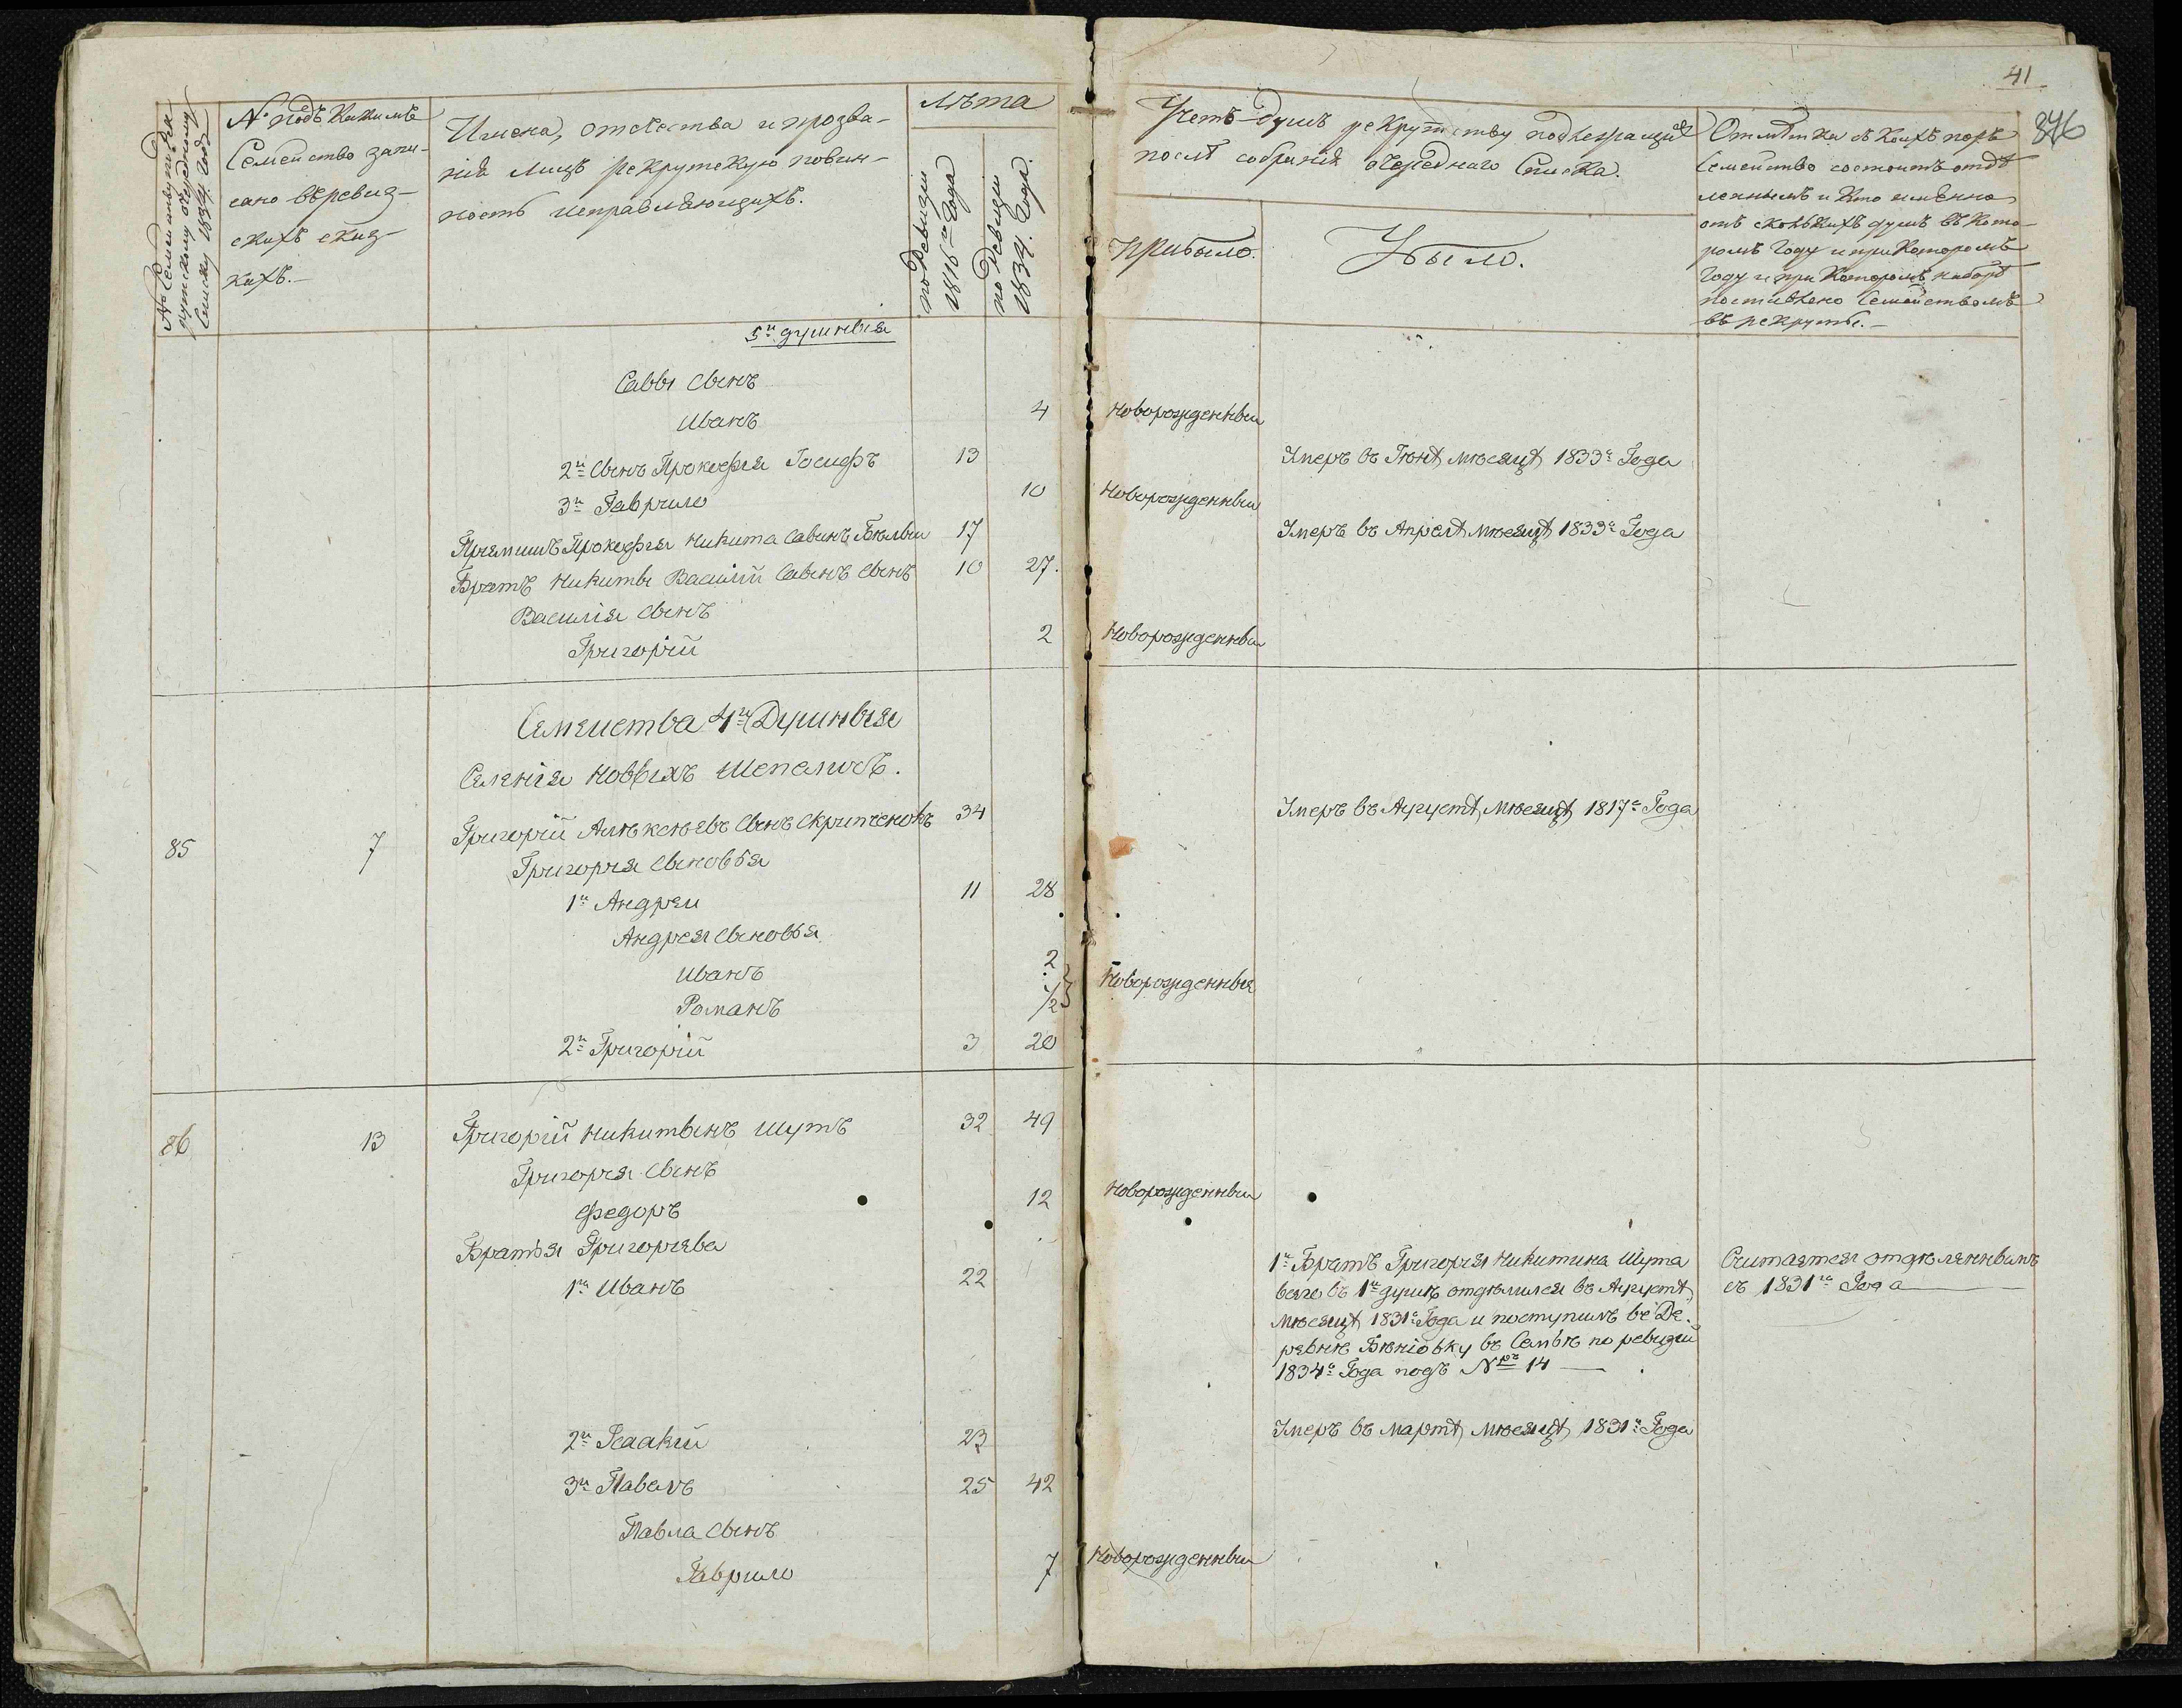 41
846
№ Семействъ по рек-
рутскому очередному
Списку 1834 Года
№ подъ какимъ
Семейство запи-
сано въ ревиз-
скихъ сказ-
кахъ.
Имена, отечества и прозва-
нія лицъ рекрутскую повин-
ность исправляющихъ.
Лѣта
по ревизіи
1816го Года
по ревизіи
1834. Года.
Учетъ душъ рекрутству подлежащихъ
послѣ собранія очереднаго Списка.
Прибыло.
Убыло.
Отмѣтки съ коихъ поръ
Семейство состоитъ отдѣ
леннымъ и кто имѣнно
отъ сколькихъ душъ въ кото-
ромъ Году и при которомъ
Году и при которомъ наборѣ
поставлено Семействомъ
въ рекруты.
5и душныя
Саввы Сынъ
Иванъ 4 Новорожденныи
2и Сынъ Прокофія Іосифъ 13 Умеръ въ Іюнѣ мѣсяцѣ 1833го Года
3и Гаврило 10 Новорожденныи
Пріемишъ Прокофія Никита Савинъ Бѣлыи 17 Умеръ въ Апрелѣ мѣсяцѣ 1833го Года
Братъ Никиты Василій Савинъ Сынъ 10 27.
Василія Сынъ
Григорій 2 Новорожденныи
Семеиства 4и Душныя
Селенія Новыхъ Шепеличъ.
85 7 Григорій Алѣксѣевъ Сынъ Скрипченокъ 34 Умеръ въ Августѣ мѣсяцѣ 1817го Года
Григорія Сыновья
1и Андреи 11 28
Андрея Сыновья
Иванъ 2 Новорожденныя
Романъ 1/2
2и Григорій 3 20
86 13 Григорій Никитынъ Шутъ 32 49
Григорія Сынъ
Федоръ 12 Новорожденныи
Братья Григорьева
1и Иванъ 22
1и Братъ Григорія Никитина Шута
всего въ 1и душѣ отдѣлился въ Августѣ
мѣсяцѣ 1831го Года и поступилъ въ Де-
ревнѣ Бѣніовку въ Семьѣ по ревизіи
1834го Года подъ №ръ 14
Считается отдѣленнымъ
съ 1831го Года
2и Ісаакій 23 Умеръ въ мартѣ мѣсяцѣ 1831го Года
3и Павелъ 25 42
Павла Сынъ
Гаврило 7 Новорожденныи